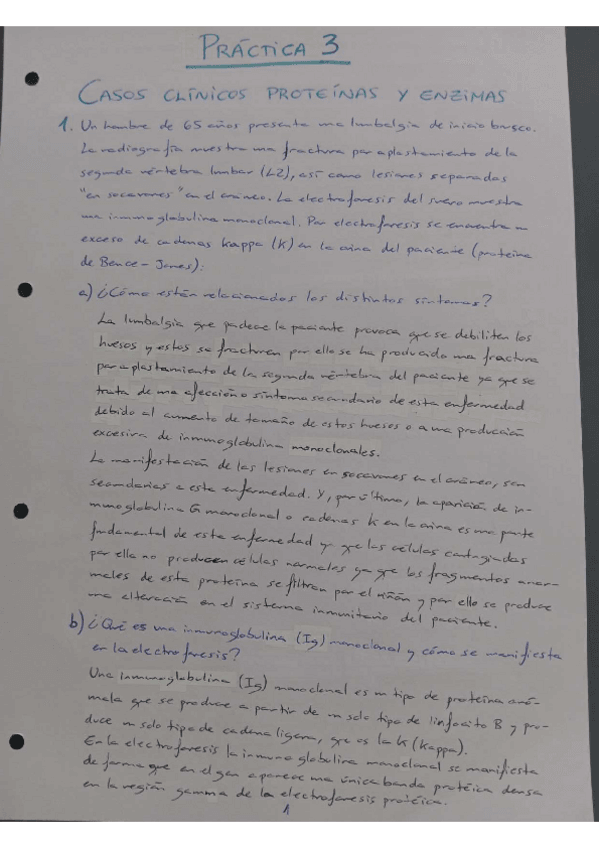 PRÁCTICA 3
CASOS CLÍNICOS PROTEÍNAS Y ENZIMAS
1. Un hombre de 65 años presenta una lumbalgia de inicio brusco.
La radiografía muestra una fractura por aplastamiento de la
segunda vértebra lumbar (L2), así como lesiones separadas
"en socavones" en el cráneo. La electroforesis del suero muestra
una inmunoglobulina monoclonal. Por electroforesis se encuentra un
exceso de cadenas kappa (K) en la orina del paciente (proteína
de Bence-Jones):
a) ¿Cómo están relacionados los distintos síntomas?
La lumbalgia que padece la paciente provoca que se debiliten los
huesos y estos se fracturen por ello se ha producido una fractura
por aplastamiento de la segunda vértebra del paciente ya que se
trata de una afección o síntoma secundario de esta enfermedad
debido al aumento de tamaño de estos huesos o a una producción
excesiva de inmunoglobulina monoclonales.
La manifestación de las lesiones en socavones en el cráneo, son
secundarias a esta enfermedad. Y, por último, la aparición de in-
munoglobulina G monoclonal o cadenas K en la orina es una parte
fundamental de esta enfermedad ya que las células contagiadas
por ella no producen células normales ya que los fragmentos anor-
males de esta proteína se filtran por el riñón y por ello se produce
una alteración en el sistema inmunitario del paciente.
b) ¿Qué es una inmunoglobulina (Ig) monoclonal y cómo se manifiesta
en la electroforesis?
Una inmunoglobulina (Ig) monoclonal es un tipo de proteína anó-
mala que se produce a partir de un solo tipo de linfocito B y pro-
duce un solo tipo de cadena ligera, que es la K (Kappa).
En la electroforesis la inmunoglobulina monoclonal se manifiesta
de forma que en el gen aparece una única banda protéica densa
en la región gamma de la electroforesis protéica.
1